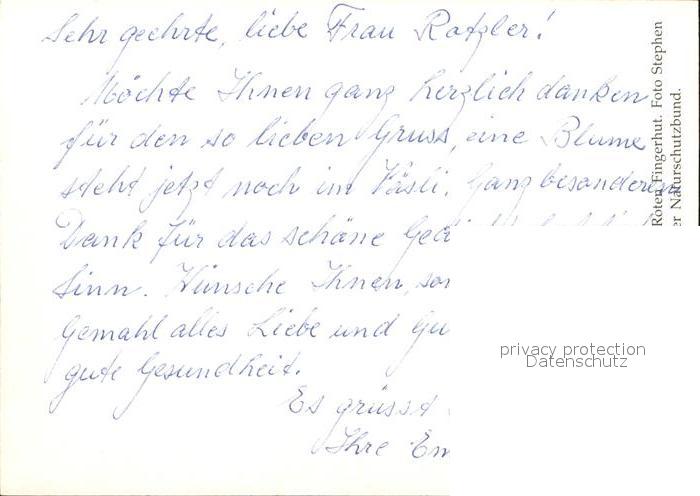 Sehr geehrte, liebe Frau Ratzler!
Möchte Ihnen ganz herzlich danken
für den so lieben Gruss, eine Blume
steht jetzt noch im Väsli. Ganz besonderen
Dank für das schöne
Sinn. Wünsche Ihnen,
Gemahl alles Liebe und
gute Gesundheit.
Es grüsst
Ihre
Roten Fingerhut. Foto Stephen
er Naturschutzbund.
privacy protection
Datenschutz